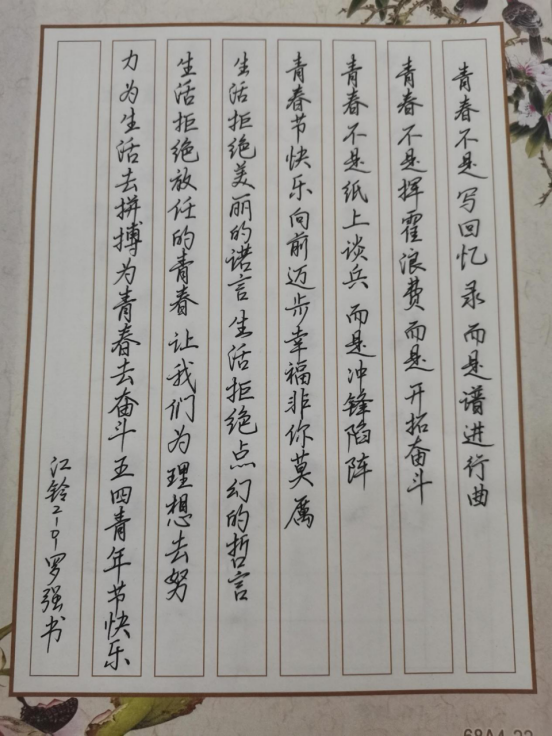 青春不是写回忆录 而是谱进行曲
青春不是挥霍浪费而是开拓奋斗
青春不是纸上谈兵 而是冲锋陷阵
青春节快乐向前迈步幸福非你莫属
生活拒绝美丽的诺言生活拒绝点幻的哲言
生活拒绝放任的青春 让我们为理想去努
力 为生活去拼搏为青春去奋斗五四青年节快乐
江铃 罗强书
68A4-22